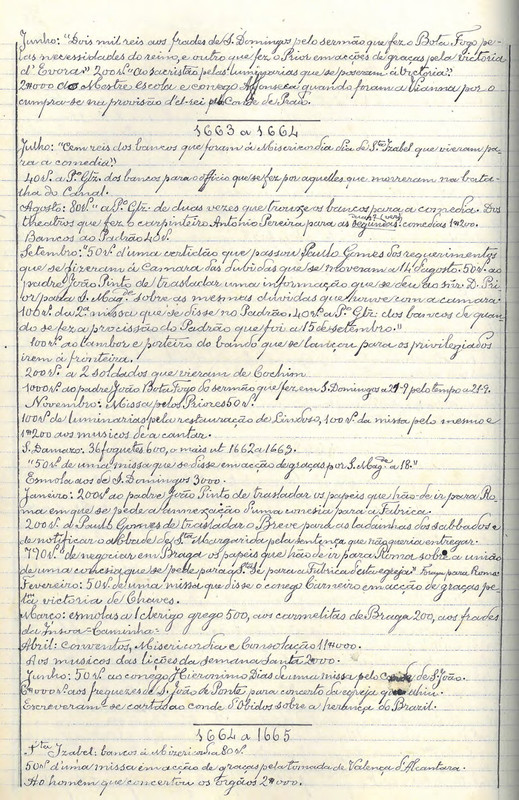 Junho: "Dois mil reis aos frades de S. Domingos pelo sermão que fez o Bota Fogo pe-
las necessidades do reino, e outro que fez o Prior em acções de graças pela victoria
d'Evora." 200rs. "ao sacristão pelas luminarias que se poseram á victoria."
2#000 ao Mestre Escola e conego Affonseca quando foram a Vianna por o
cumpra-se na provisão d'el-rei pelo Conde de Prado.
1663 a 1664
Julho: "Cem reis dos bancos que foram á Misericordia dia de S.ta Izabel que vieram pa-
ra a comedia."
40rs. a P.º Glz. dos bancos para o officio que se fez por aquelles que morreram na bata-
lha do Canal.
Agosto: 80rs. "a P.º Glz. de duas vezes que trouxe os bancos para a comedia. Dos
theatros que fez o carpinteiro Antonio Pereira para as segundas comedias 1#200.
Bancos ao Padrão 45rs.
Setembro: "50rs. d'uma certidão que passou Paulo Gomes dos requerimentos
que se fizeram á Camara das dubidas que se moveram a 14 d'agosto. 50rs. ao
padre João Pinto de trasladar uma informação que se deu ao snr. D. Pri-
or para S. Mag.de sobre as mesmas duvidas que houve com a camara.
100rs. da 2.ª missa que se disse no Padrão. 40rs. a P.º Glz. dos bancos de quan-
do se fez a procissão do Padrão que foi a 15 de setembro."
100rs. ao tambor e porteiro do bando que se lançou para os privilegiados
irem á fronteira.
200rs. a 2 soldados que vieram de Cochim.
1000rs. ao padre João Bota Fogo do sermão que fez em S. Domingos a 21-9 pelo tempo a 21-9.
Novembro: Missa pelos Priores 50rs.
100rs. de luminarias pela restauração de Lindoso, 100rs. da missa pelo mesmo e
1#200 aos musicos de a cantar.
S. Damazo. 36 foguetes 600, o mais ut 1662 a 1663.
"50rs. de uma missa que se disse em acção de graças por S. Mag.de a 18."
Esmola aos de S. Domingos 3000.
Janeiro: 200rs. ao padre João Pinto de trasladar os papeis que hão-de ir para Ro-
ma em que se pede a annexação d'uma conesia para a Fabrica.
200rs. a Paulo Gomes de trasladar o Breve para as ladainhas dos sabbados e
de notificar o Abbade de S.ta Margarida pela sentença que não queria entregar.
790rs. de negociar em Braga os papeis que hão de ir para Roma sobre a união
de uma conesia que se pede para a Fabrica desta egreja."
Fevereiro: 50rs. de uma missa que disse o conego Carneiro em acção de graças pe-
la victoria de Chaves.
Março: esmolas a 1 clerigo grego 500, aos carmelitas de Braga 200, aos frades
da Insoa-Caminha.
Abril: conventos, Misericordia e Consolação 11#000.
Aos musicos das lições da semana santa 2#000.
Junho: 50rs. ao conego Hieronimo Dias de uma missa pelo Conde de S. João.
6#000rs. aos freguezes de S. João de Ponte para concerto da egreja que cahiu.
Escreveram-se cartas ao conde d'Obidos sobre a herança do Brazil.
1664 a 1665
S.ta Izabel: bancos á Misericordia 80rs.
50rs. d'uma missa em acção de graças pela tomada de Valença d'Alcantara.
Ao homem que concertou os orgãos 2#000.